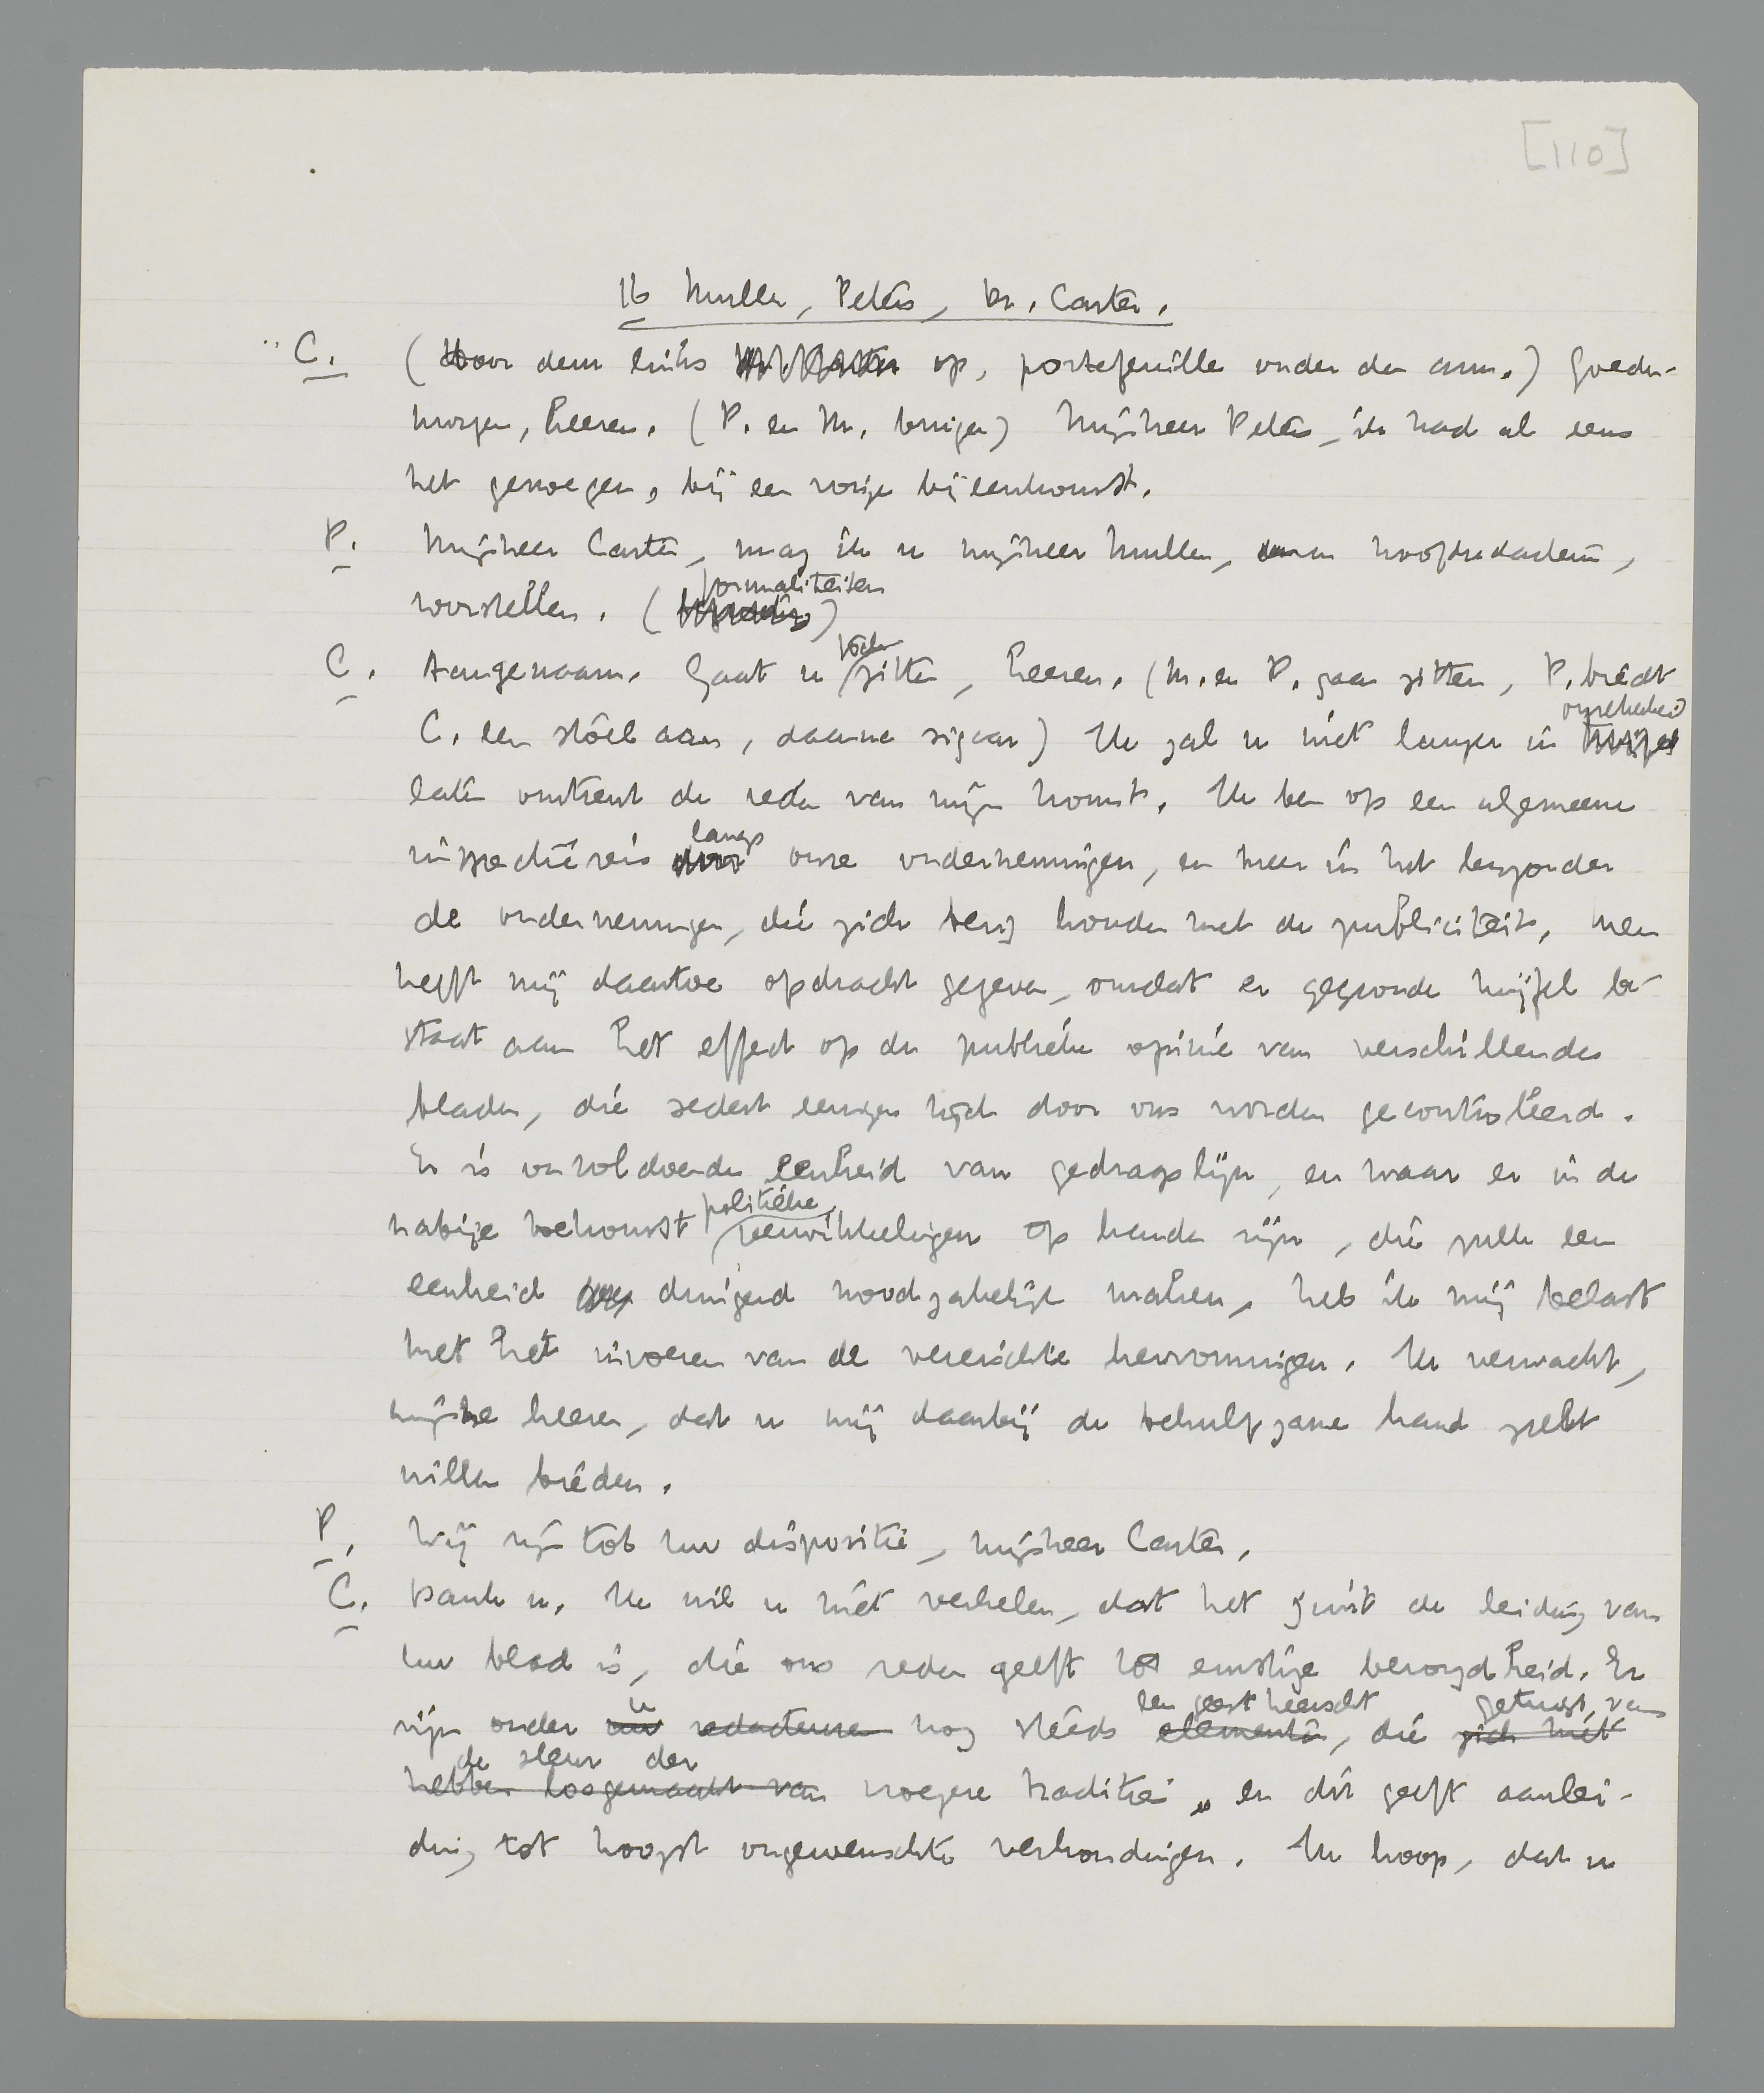 [110]
16 Muller, Peters, Dr. Carter.
C. (Door deur links op, portefeuille onder den arm.) Goeden-
morgen, heeren. (P. en M. buigen) Mijnheer Peters, ik had al eens
het genoegen, bij een vorige bijeenkomst.
P. Mijnheer Carter, mag ik u mijnheer Muller, onzen hoofdredacteur,
formaliteiten
voorstellen. ( )
toch
C. Aangenaam. Gaat u zitten, heeren. (M. en P. gaan zitten, P. biedt
onzekerheid
C. een stoel aan, daarna sigaar) Ik zal u niet langer in twijfel
laten omtrent de reden van mijn komst. Ik ben op een algemeene
langs
inspectiereis door onze ondernemingen, en meer in het bijzonder
de ondernemingen, die zich bezig houden met de publiciteit. Men
heeft mij daartoe opdracht gegeven, omdat er gegronde twijfel be-
staat aan het effect op de publieke opinie van verschillende
bladen, die sedert eenigen tijd door ons worden gecontroleerd.
Er is onvoldoende eenheid van gedragslijn, en waar er in de
politieke
nabije toekomst verwikkelingen op handen zijn, die zulk een
eenheid dringend noodzakelijk maken, heb ik mij belast
met het invoeren van de vereischte hervormingen. Ik verwacht,
mijne heeren, dat u mij daarbij de behulpzame hand zult
willen bieden.
P. Wij zijn tot uw dispositie, mijnheer Carter.
C. Dank u. Ik wil u niet verhelen, dat het juist de leiding van
uw blad is, die ons reden geeft tot ernstige bezorgdheid. Er
u een geest heerscht getuigt van
zijn onder uw redacteuren nog steeds elementen, die zich niet
de sleur der
hebben losgemaakt van vroegere traditie, en dit geeft aanlei-
ding tot hoogst ongewenschte verhoudingen. Ik hoop, dat u